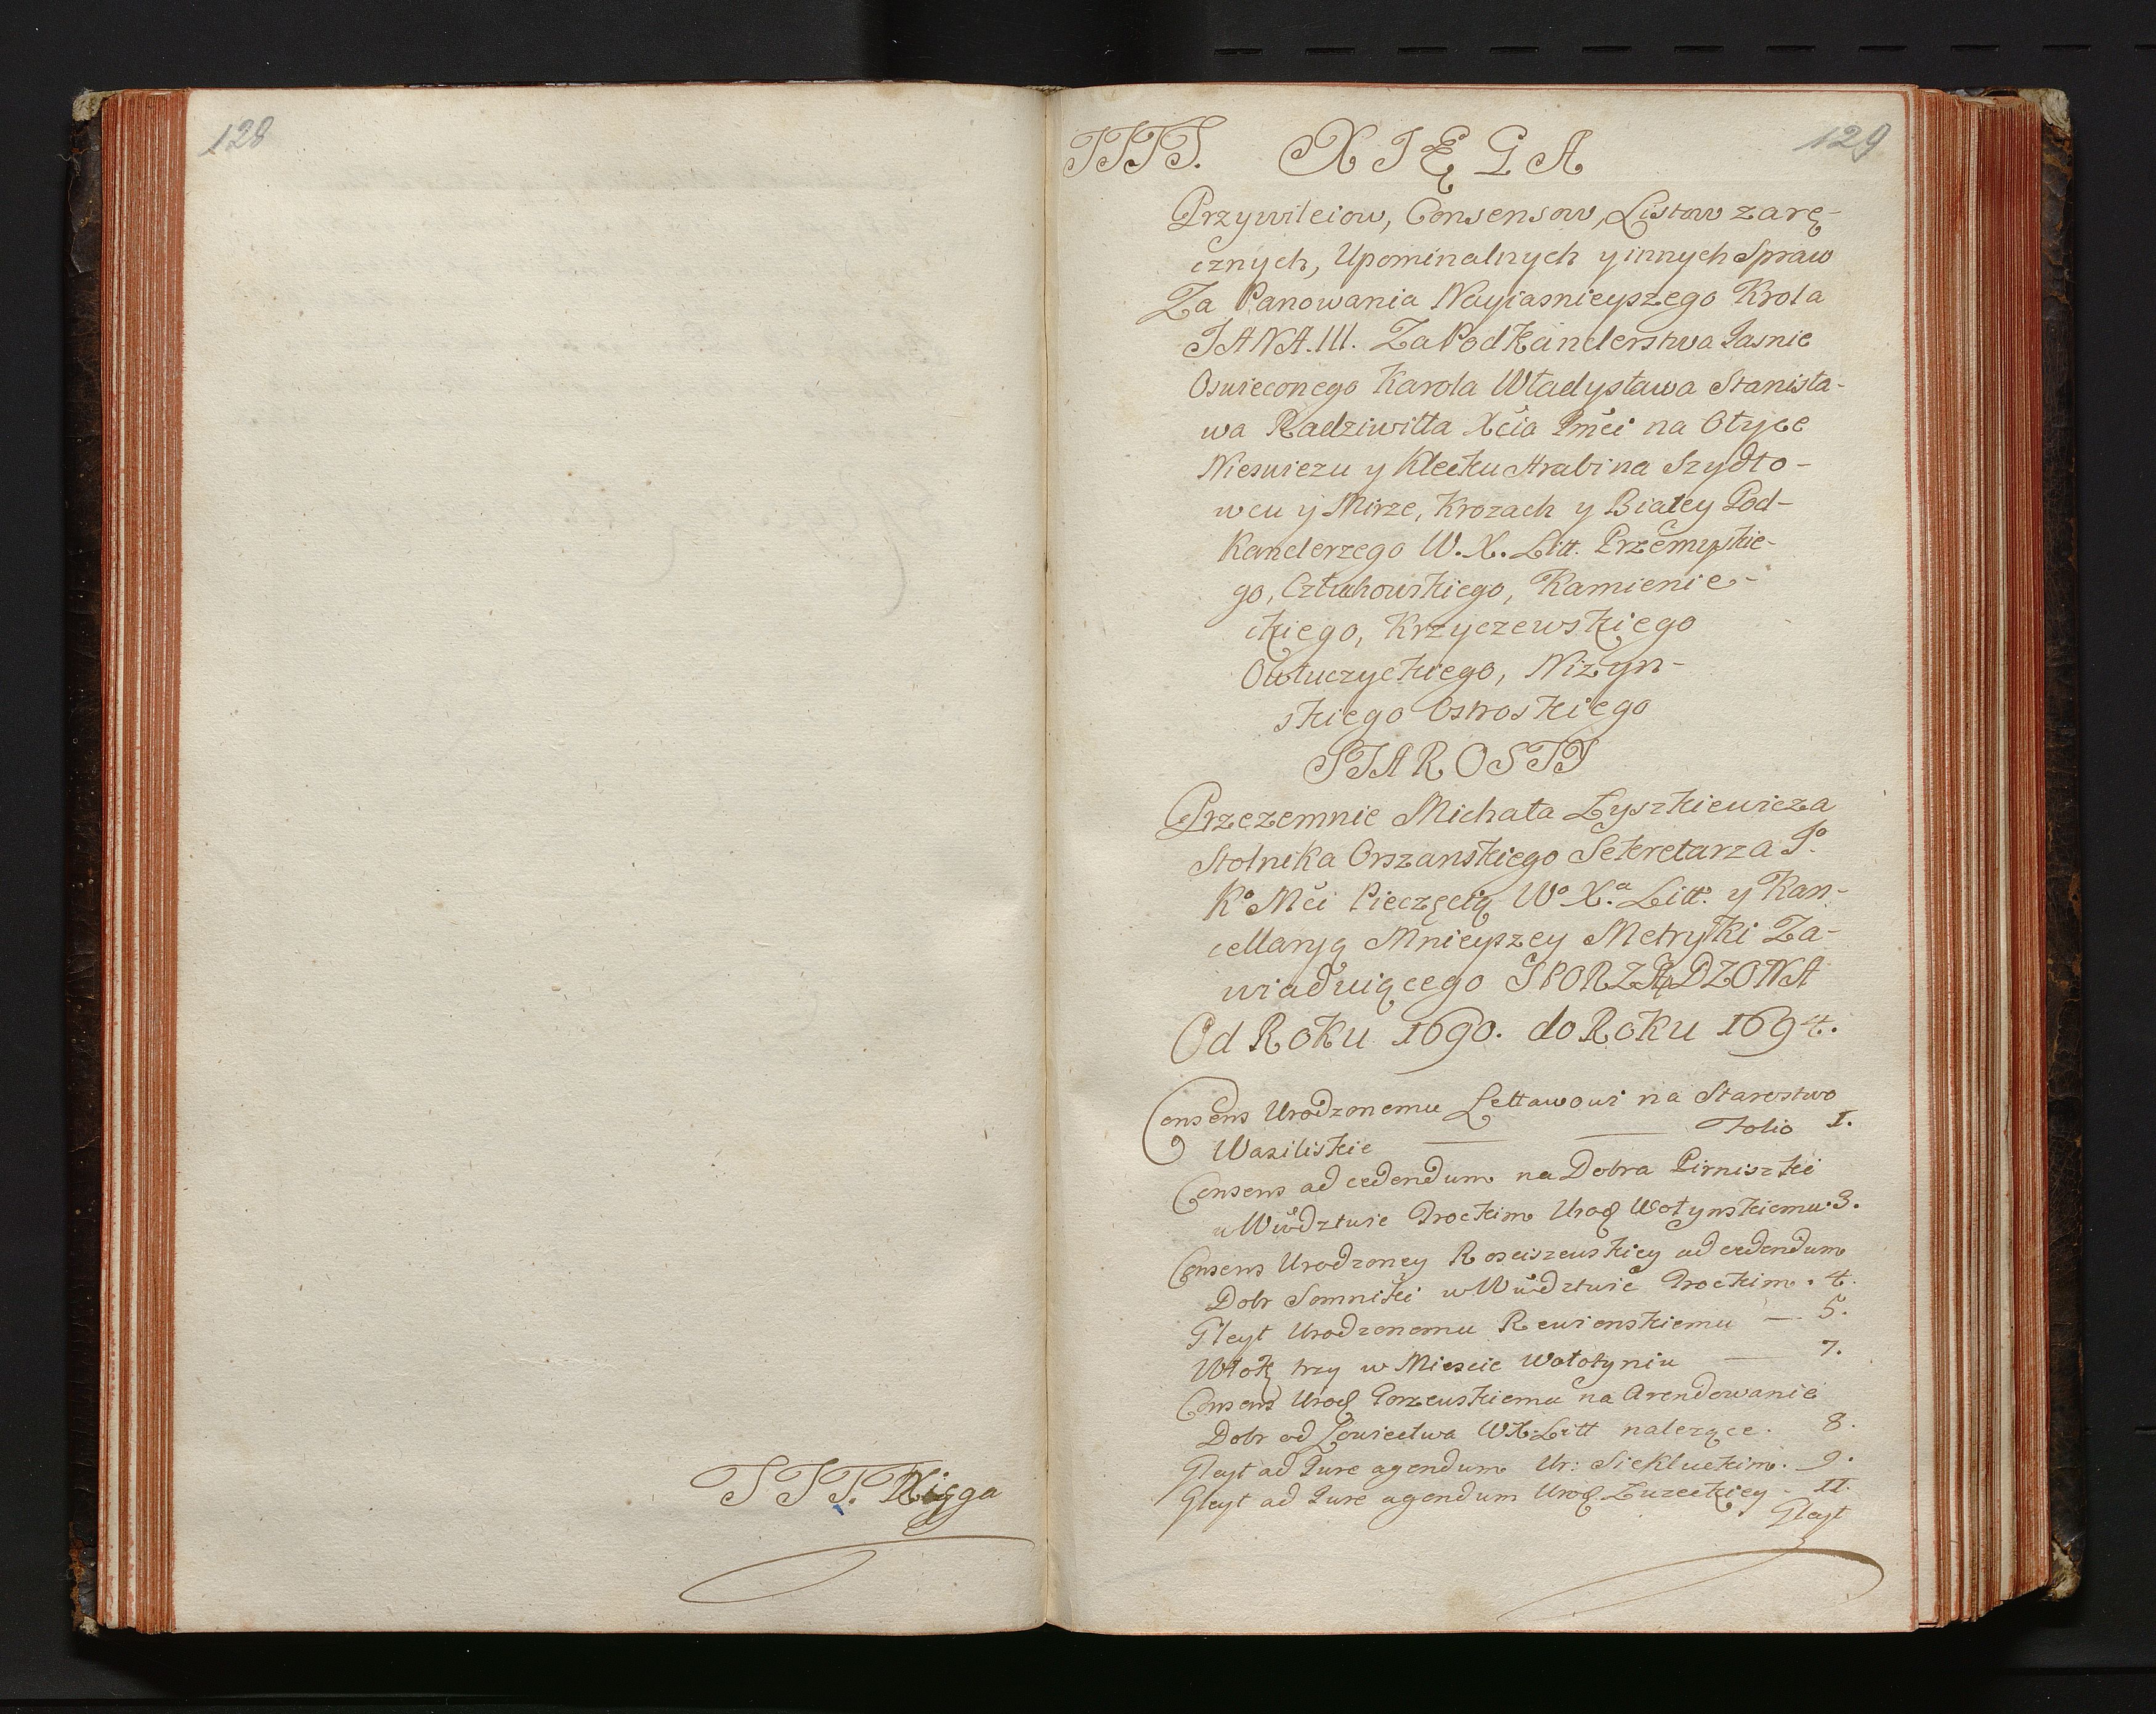 128
TTTT. Xięga
129
TTTT. XIĘGA
Przywileiow, Consensow, Listow zarę-
cznych, Upominalnych y innych Spraw
Za Panowania Nayiasnieyszego Krola
JANA. III. Za Podkanclerstwa Jasnie
Oswieconego Karola Władysława Stanisła-
wa Radziwiłła Xcia Jmći na Ołyce
Nieswiezu y Klecku Hrabi na Szydło-
wcu y Mirze, Krozach y Białey Pod-
kanclerzego W. X. Litt. Przemyskie-
go, Człuchowskiego, Kamienie-
ckiego, Krzyczewskiego
Owłuczyckiego, Nizyn-
skiego Ostroskiego
STAROSTY
Przezemnie Michała Łyszkiewicza
Stolnika Orszanskiego Sekretarza Jº.
Kº Mći Pieczęcią Wº Xª. Litt. y Kan-
cellaryą Mnieyszey Metryki Za-
wiaduiącego SPORZĄDZONA
Od Roku 1690. do Roku 1694.
Consens Urodzonemu Lettawowi na Starostwo
Wasiliskie Folio 1.
Consens ad cedendum na Dobra Pirniszki
w Wwdztwie Trockim Urod Wołynskiemu. 3.
Consens Urodzoney Rosciszewskiey ad cedendum
Dobr Somniki w Wwdztwie Trockim. 4.
Gleyt Urodzonemu Rewienskiemu — 5.
Włok trzy w Miescie Wołożyniu — 7.
Consens Urod Gorzewskiemu na Arendowanie
Dobr od Łowiectwa WX: Litt nalezące. 8.
Gleyt ad Jure agendum Ur: Siekluckim. 9.
Gleyt ad Jure agendum Urod. Zuzeckiey - 11.
Gleyt